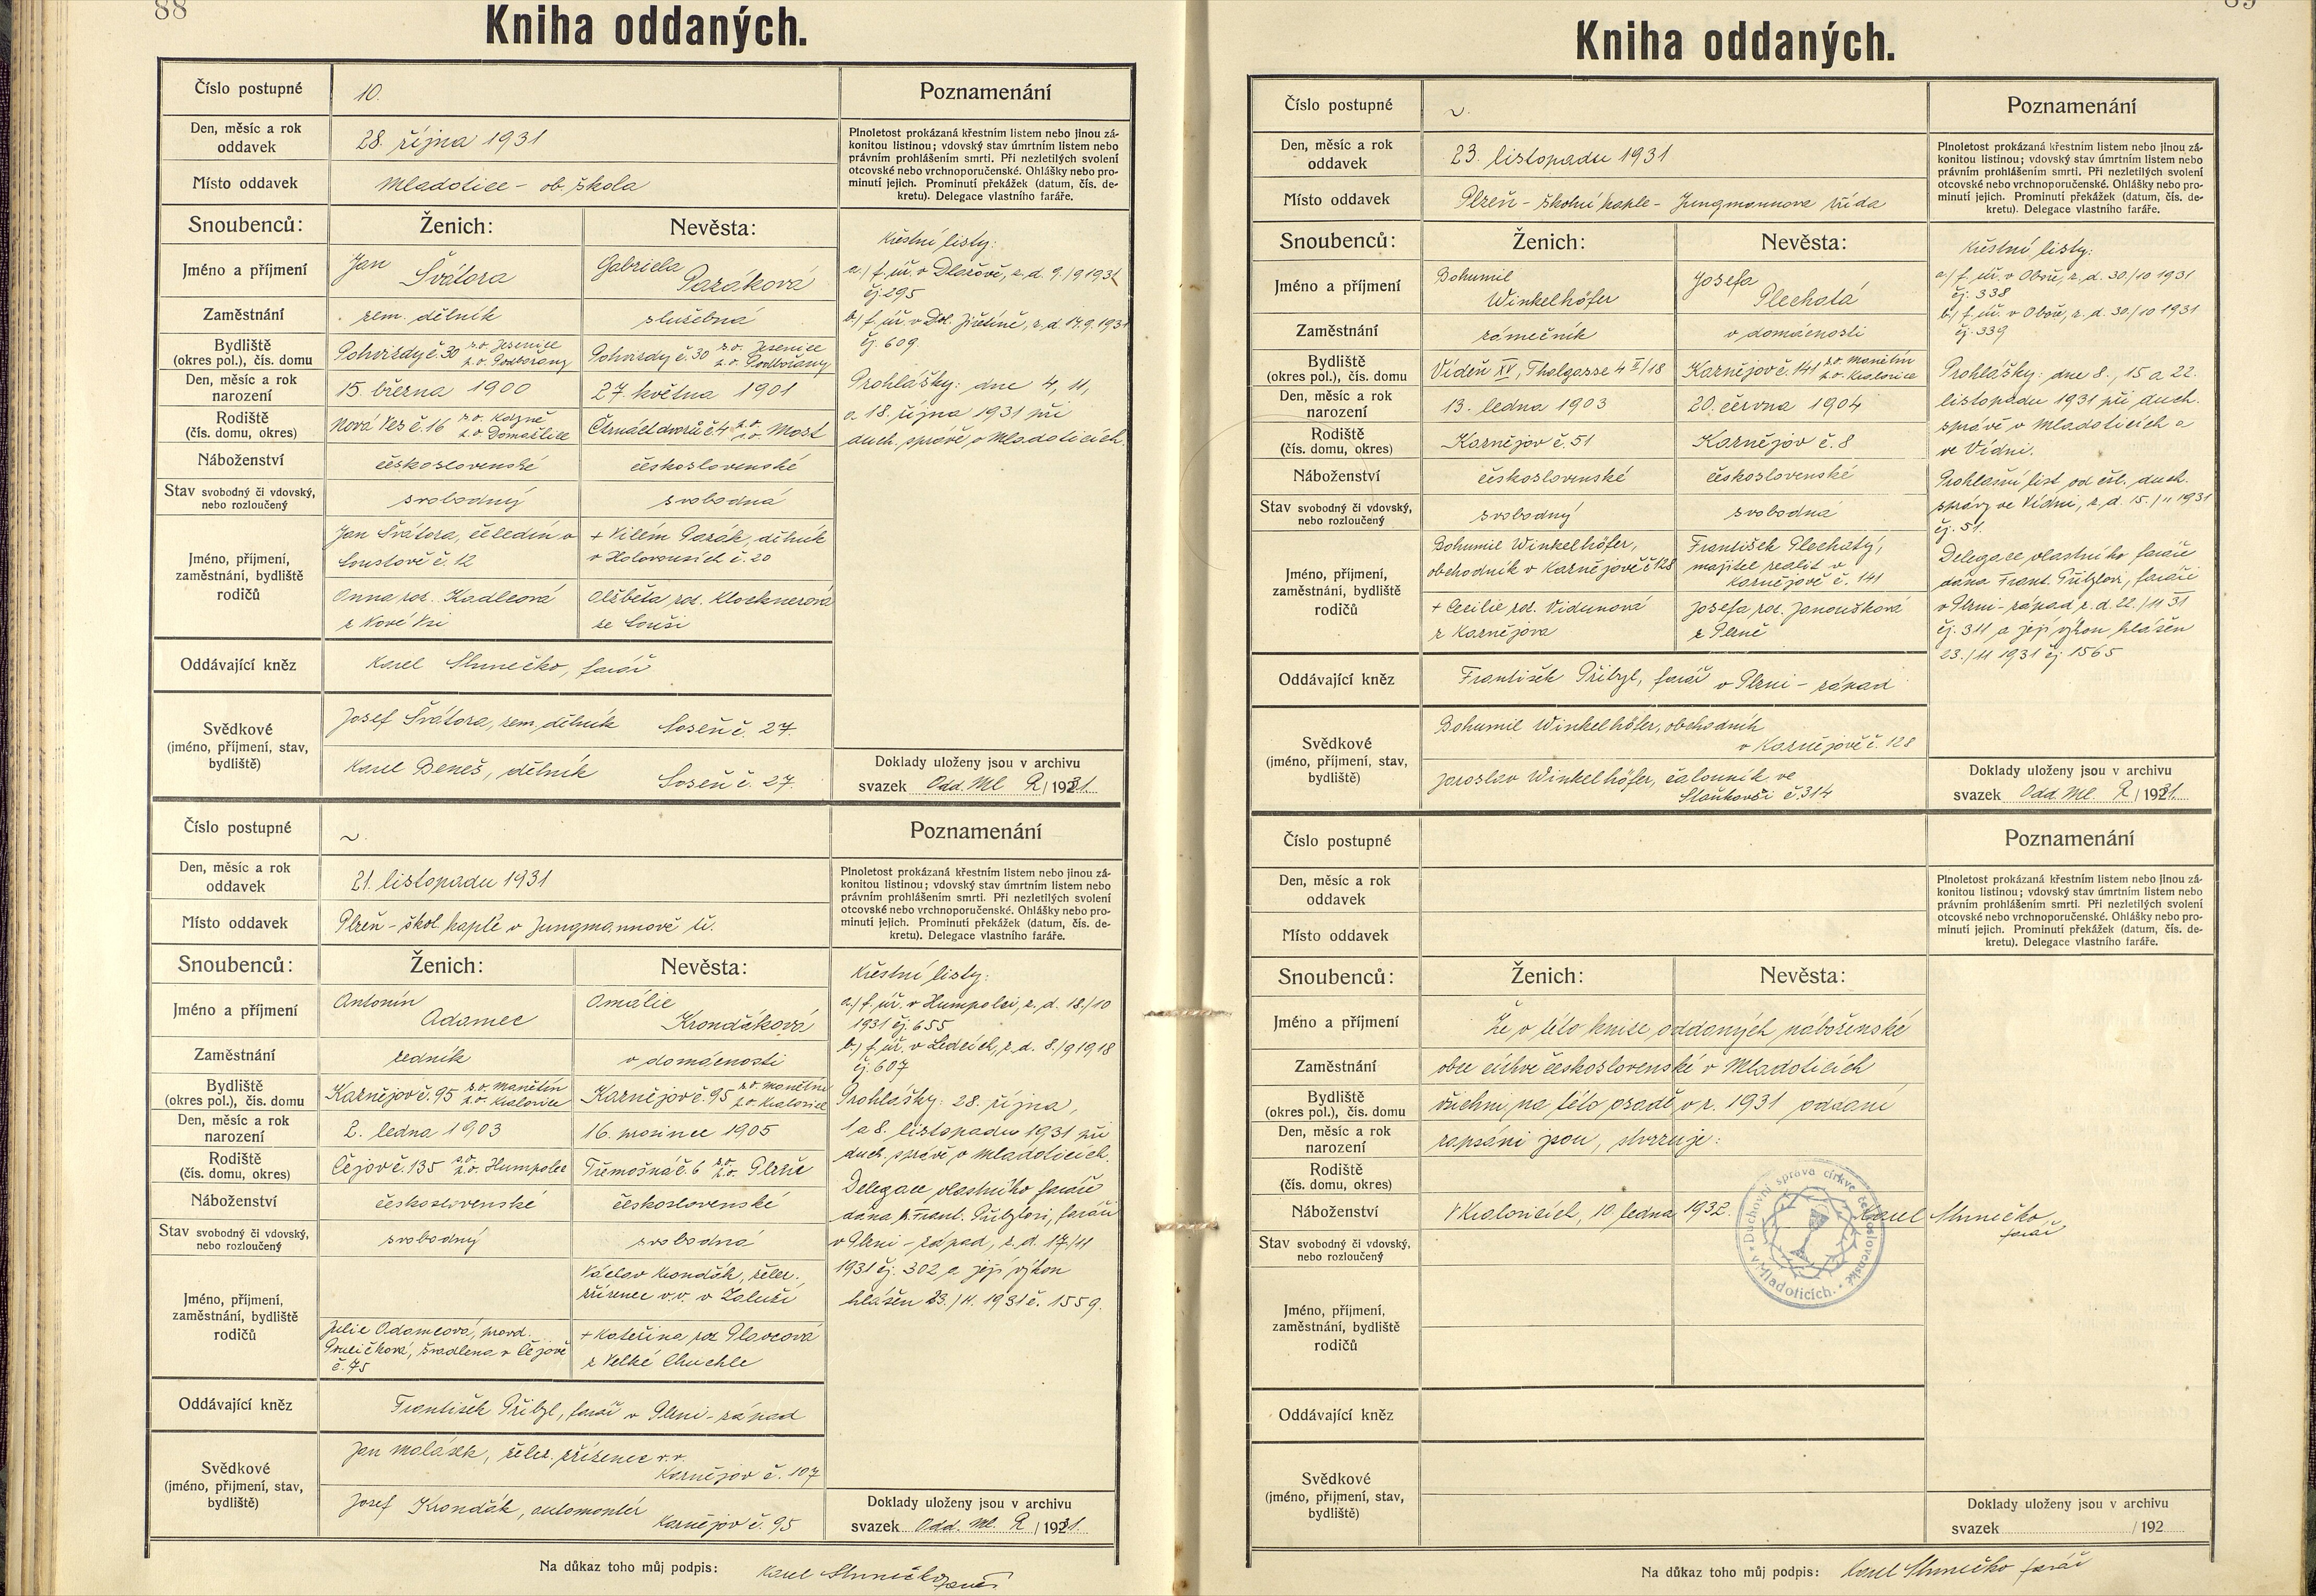 88
Kniha oddaných.
Číslo postupné 10. Poznamenání
Den, měsíc a rok oddavek 28. října 1931
Plnoletost prokázaná křestním listem nebo jinou zá-
konitou listinou; vdovský stav úmrtním listem nebo
právním prohlášením smrti. Při nezletilých svolení
otcovské nebo vrchnoporučenské. Ohlášky nebo pro-
minutí jejich. Prominutí překážek (datum, čís. de-
kretu). Delegace vlastního faráře.
Místo oddavek Mladotice - ob. škola
Snoubenců: Ženich: Nevěsta:
Jméno a příjmení Jan Švátora Gabriela Pazáková
Zaměstnání zem. dělník služebná
Bydliště (okres pol.), čís. domu Pohvizdy č. 30 s.o. Jesenice p.o. Podbořany Pohvizdy č. 30 s.o. Jesenice p.o. Podbořany
Den, měsíc a rok narození 15. března 1900 27. května 1901
Rodiště (čís. domu, okres) Nová Ves č. 16 s.o. Kdyně p.o. Domažlice Čtrnáct dvorů č. 4 Most
Náboženství československé československé
Stav svobodný či vdovský, nebo rozloučený svobodný svobodná
Jméno, příjmení, zaměstnání, bydliště rodičů
Jan Švátora, čeledín v
Loustově č. 12
+ Vilém Pazák, dělník
v Holovousích č. 20
Anna roz. Kadlecová
z Nové Vsi
Alžběta roz. Klocknerová
ze Souši
Křestní listy:
a.) f. úř. v Dlažově, z. d. 9./9 1931
čj. 295
b.) f. úř. v Dol. Jiřetíně, z. d. 17.9.1931
čj. 609.
Prohlášky: dne 4, 11,
a 18. října 1931 při
duch. správě v Mladoticích.
Oddávající kněz Karel Slunečko, farář
Svědkové (jméno, příjmení, stav, bydliště)
Josef Švátora, zem. dělník Soseň č. 27.
Karel Beneš, dělník Soseň č. 27.
Doklady uloženy jsou v archivu
svazek Odd. Ml. R/1931.
Číslo postupné ~. Poznamenání
Den, měsíc a rok oddavek 21. listopadu 1931
Plnoletost prokázaná křestním listem nebo jinou zá-
konitou listinou; vdovský stav úmrtním listem nebo
právním prohlášením smrti. Při nezletilých svolení
otcovské nebo vrchnoporučenské. Ohlášky nebo pro-
minutí jejich. Prominutí překážek (datum, čís. de-
kretu). Delegace vlastního faráře.
Místo oddavek Plzeň - škol. kaple v Jungmannově tř.
Snoubenců: Ženich: Nevěsta:
Jméno a příjmení Antonín Adamec Amálie Krondáková
Zaměstnání řezník v domácnosti
Bydliště (okres pol.), čís. domu Kaznějov č. 95 s.o. Manětín p.o. Kralovice Kaznějov č. 95 s.o. Manětín p.o. Kralovice
Den, měsíc a rok narození 2. ledna 1903 16. prosince 1905
Rodiště (čís. domu, okres) Čejov č. 135 s.o. p.o. Humpolec Třemošná č. 6 s.o. p.o. Plzeň
Náboženství československé československé
Stav svobodný či vdovský, nebo rozloučený svobodný svobodná
Jméno, příjmení, zaměstnání, bydliště rodičů
Václav Krondák, želez.
zřízenec v.v. v Záluží
Julie Adamcová, provd.
švadlena v Čejově
č. 75
+ Kateřina roz. Plavcová
z Velké Chuchle
Křestní listy:
a.) f. úř. v Humpolci, z. d. 18./10
1931 čj. 655
b.) f. úř. v Ledcích, z. d. 8./9 1918
čj. 607
Prohlášky: 28. října,
1 a 8. listopadu 1931 při
duch. správě v Mladoticích.
Delegace vlastního faráře
dána p. Frant. Přibylovi, faráři
v Plzni - západ, z. d. 17/11
1931 čj. 302 a její výkon
hlášen 23./11. 1931 č. 1559.
Oddávající kněz František Přibyl, farář v Plzni - západ
Svědkové (jméno, přijmení, stav, bydliště)
Jan Malásek, želez. zřízenec v.v.
Kaznějov č. 107
Josef Krondák, automontér
Kaznějov č. 95
Doklady uloženy jsou v archivu
svazek Odd. Ml. R/1931.
Na důkaz toho můj podpis: Karel Slunečko farář
Kniha oddaných.
Číslo postupné ~. Poznamenání
Den, měsíc a rok oddavek 23. listopadu 1931
Plnoletost prokázaná křestním listem nebo jinou zá-
konitou listinou; vdovský stav úmrtním listem nebo
právním prohlášením smrti. Při nezletilých svolení
otcovské nebo vrchnoporučenské. Ohlášky nebo pro-
minutí jejich. Prominutí překážek (datum, čís. de-
kretu). Delegace vlastního faráře.
Místo oddavek Plzeň - školní kaple - Jungmannova třída
Snoubenců: Ženich: Nevěsta:
Jméno a příjmení Bohumil Winkelhöfer Josefa Plechatá
Zaměstnání zámečník v domácnosti
Bydliště (okres pol.), čís. domu Vídeň XV, Thalgasse 4 II/18 Kaznějov č. 141 s.o. Manětín p.o. Kralovice
Den, měsíc a rok narození 13. ledna 1903 20. června 1904
Rodiště (čís. domu, okres) Kaznějov č. 51 Kaznějov č. 8
Náboženství československé československé
Stav svobodný či vdovský, nebo rozloučený svobodný svobodná
Jméno, příjmení, zaměstnání, bydliště rodičů
Bohumil Winkelhöfer,
obchodník v Kaznějově č 128
František Plechatý,
majitel realit v
Kaznějově č. 141
+ Cecilie roz. Vidunová
z Kaznějova
Josefa roz. Janoušková
z Plzně
Křestní listy:
a.) f. úř. v Oboře, z. d. 30./10 1931
čj. 338
b.) f. úř. v Oboře, z. d. 30./10 1931
čj. 339
Prohlášky: dne 8., 15 a 22.
listopadu 1931 při duch.
správě v Mladoticích a
ve Vídni.
Prohlášní list od čsl. duch.
správy ve Vídni, z. d. 15./11 1931
čj. 51.
Delegace vlastního faráře
dána Frant. Přibylovi, faráři
v Plzni - západ z. d. 22./11 31
čj. 311 a její výkon hlášen
23./11 1931 čj. 1565
Oddávající kněz František Přibyl, farář v Plzni - západ
Svědkové (jméno, příjmení, stav, bydliště)
Bohumil Winkelhöfer, obchodník
v Kaznějově č. 128
Jaroslav Winkelhöfer, čalouník ve
Staňkově č. 314
Doklady uloženy jsou v archivu
svazek Odd. Ml. R/1931.
Číslo postupné Poznamenání
Den, měsíc a rok oddavek
Plnoletost prokázaná křestním listem nebo jinou zá-
konitou listinou; vdovský stav úmrtním listem nebo
právním prohlášením smrti. Při nezletilých svolení
otcovské nebo vrchnoporučenské. Ohlášky nebo pro-
minutí jejich. Prominutí překážek (datum, čís. de-
kretu). Delegace vlastního faráře.
Místo oddavek
Snoubenců: Ženich: Nevěsta:
Jméno a příjmení Že v této knize oddaných náboženské
Zaměstnání obce církve československé v Mladoticích
Bydliště (okres pol.), čís. domu všichni na této osadě v r. 1931 oddaní
Den, měsíc a rok narození zapsáni jsou, stvrzuje:
Rodiště (čís. domu, okres)
Náboženství V Kralovicích, 10. ledna 1932. Karel Slunečko
farář
Duchovní správa církve československé v Mladoticích.
Stav svobodný či vdovský, nebo rozloučený
Jméno, příjmení, zaměstnání, bydliště rodičů
Oddávající kněz
Svědkové (jméno, přijmení, stav, bydliště)
Doklady uloženy jsou v archivu
svazek /192
Na důkaz toho můj podpis: Karel Slunečko farář